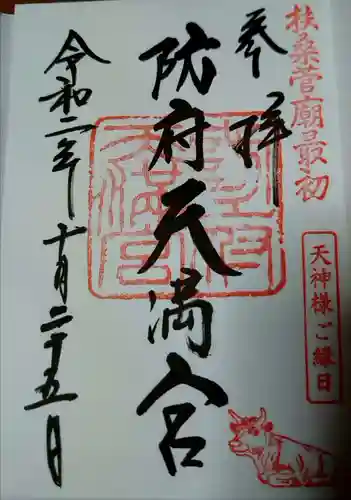 扶桑菅廟最初
天神様ご縁日
参拝
防府天満宮
令和二年十月二十五日